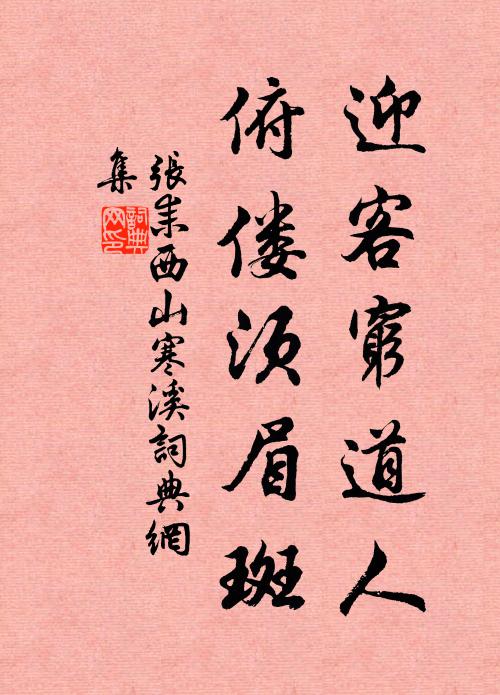 迎客窮道人
俯偻须眉斑
張耒西山寒溪詞典網
集
詞典网印